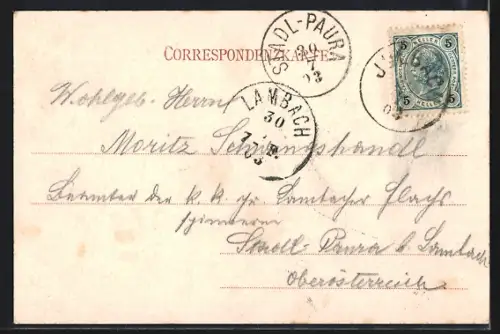 CORRESPONDENZKARTE
STADL-PAURA
30
7
03
LAMBACH
30
7
03
5 5
HELLER HELLER
5 5
03
Wohlgeb. Herrn
Moritz
Beamter der k. k. pr. Lambacher Flachs
spinnerei
Stadl-Paura b. Lambach
Oberösterreich.